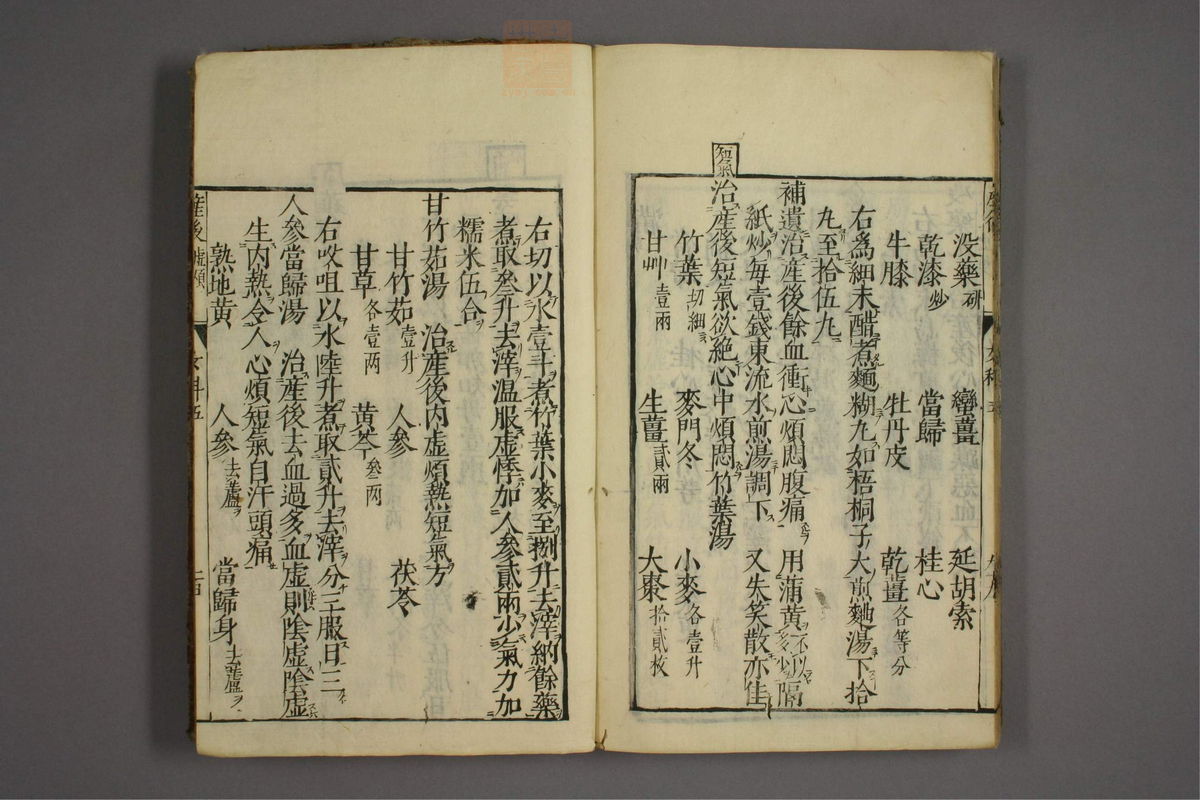 没藥研 蠻薑 延胡索
乾漆炒 當歸 桂心
牛膝 牡丹皮 乾薑各等分
右爲細末醋煮麵糊丸如梧桐子大煎麵湯下拾
丸至拾伍丸
補遺治産後餘血衝心煩悶腹痛 用蒲黄不以多少隔
紙炒每壹錢東流水煎湯調下 又失笑散亦佳
短氣
治産後短氣欲絶心中煩悶竹葉湯
竹葉切細 麥門冬 小麥各壹升
甘艸壹兩 生薑貳兩 大棗拾貳枚
右切以水壹斗煮竹葉小麥至捌升去滓納餘藥
煮取叁升去滓温服虚悸加人參貳兩少氣力加
糯米伍合
甘竹茹湯 治産後内虚煩熱短氣方
甘竹茹壹升 人參 茯苓
甘草各壹两 黄芩叁两
右㕮咀以水陸升煮取貳升去滓分三服日三
人參當歸湯 治産後去血過多血虚則陰虚陰虚
生内熱令人心煩短氣自汗頭痛
熟地黄 人參去蘆 當歸身去蘆
産後
女科五